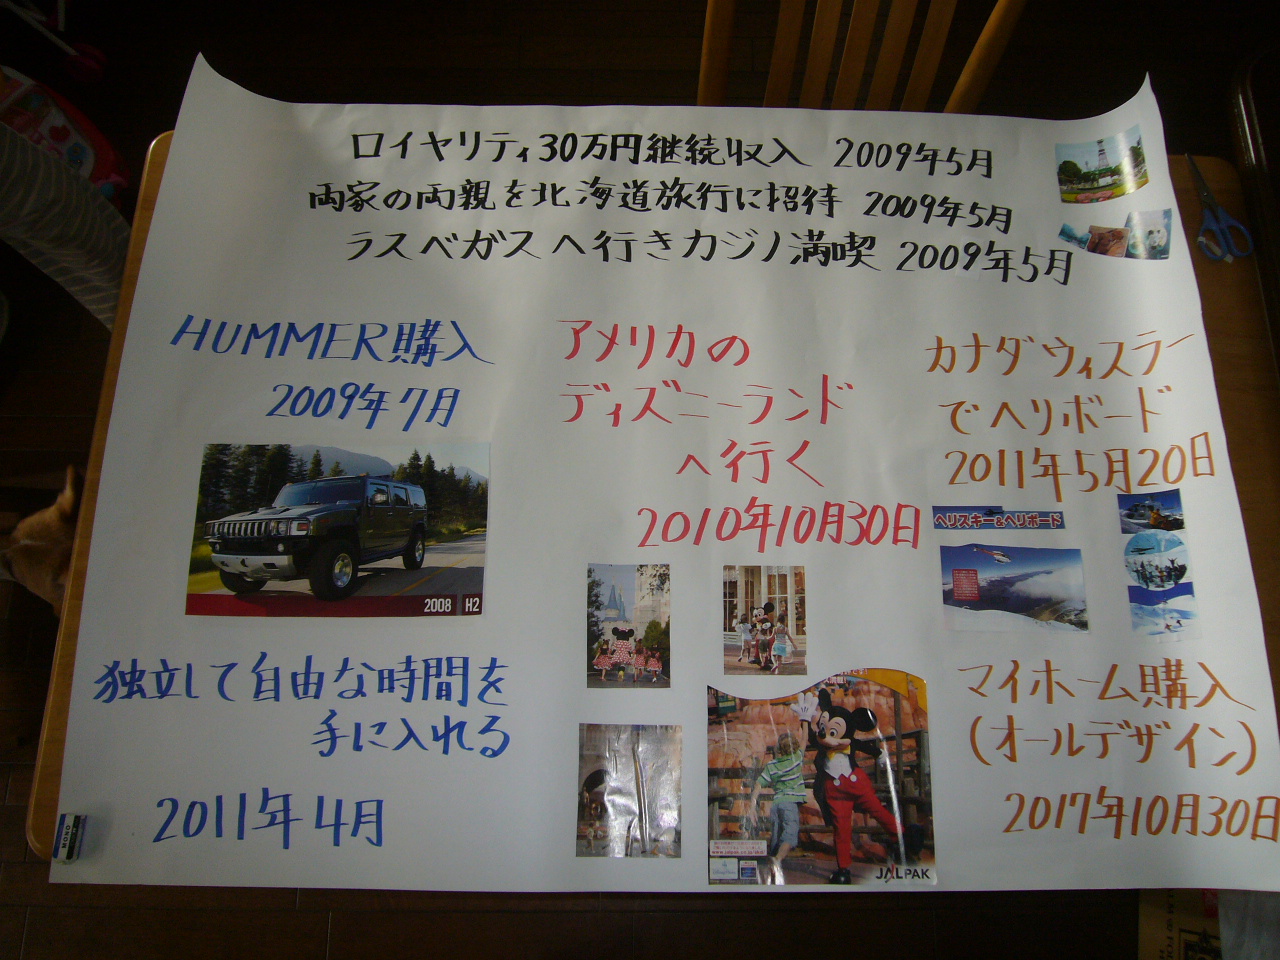 ロイヤリティ30万円継続収入 2009年5月
両家の両親を北海道旅行に招待 2009年5月
ラスベガスへ行きカジノ満喫 2009年5月
HUMMER購入
2009年7月
2008 H2
独立して自由な時間を
手に入れる
2011年4月
アメリカの
ディズニーランド
へ行く
2010年10月30日
JALPAK
カナダウィスラー
でヘリボード
2011年5月20日
ヘリスキー&ヘリボード
マイホーム購入
(オールデザイン)
2017年10月30日
MONO